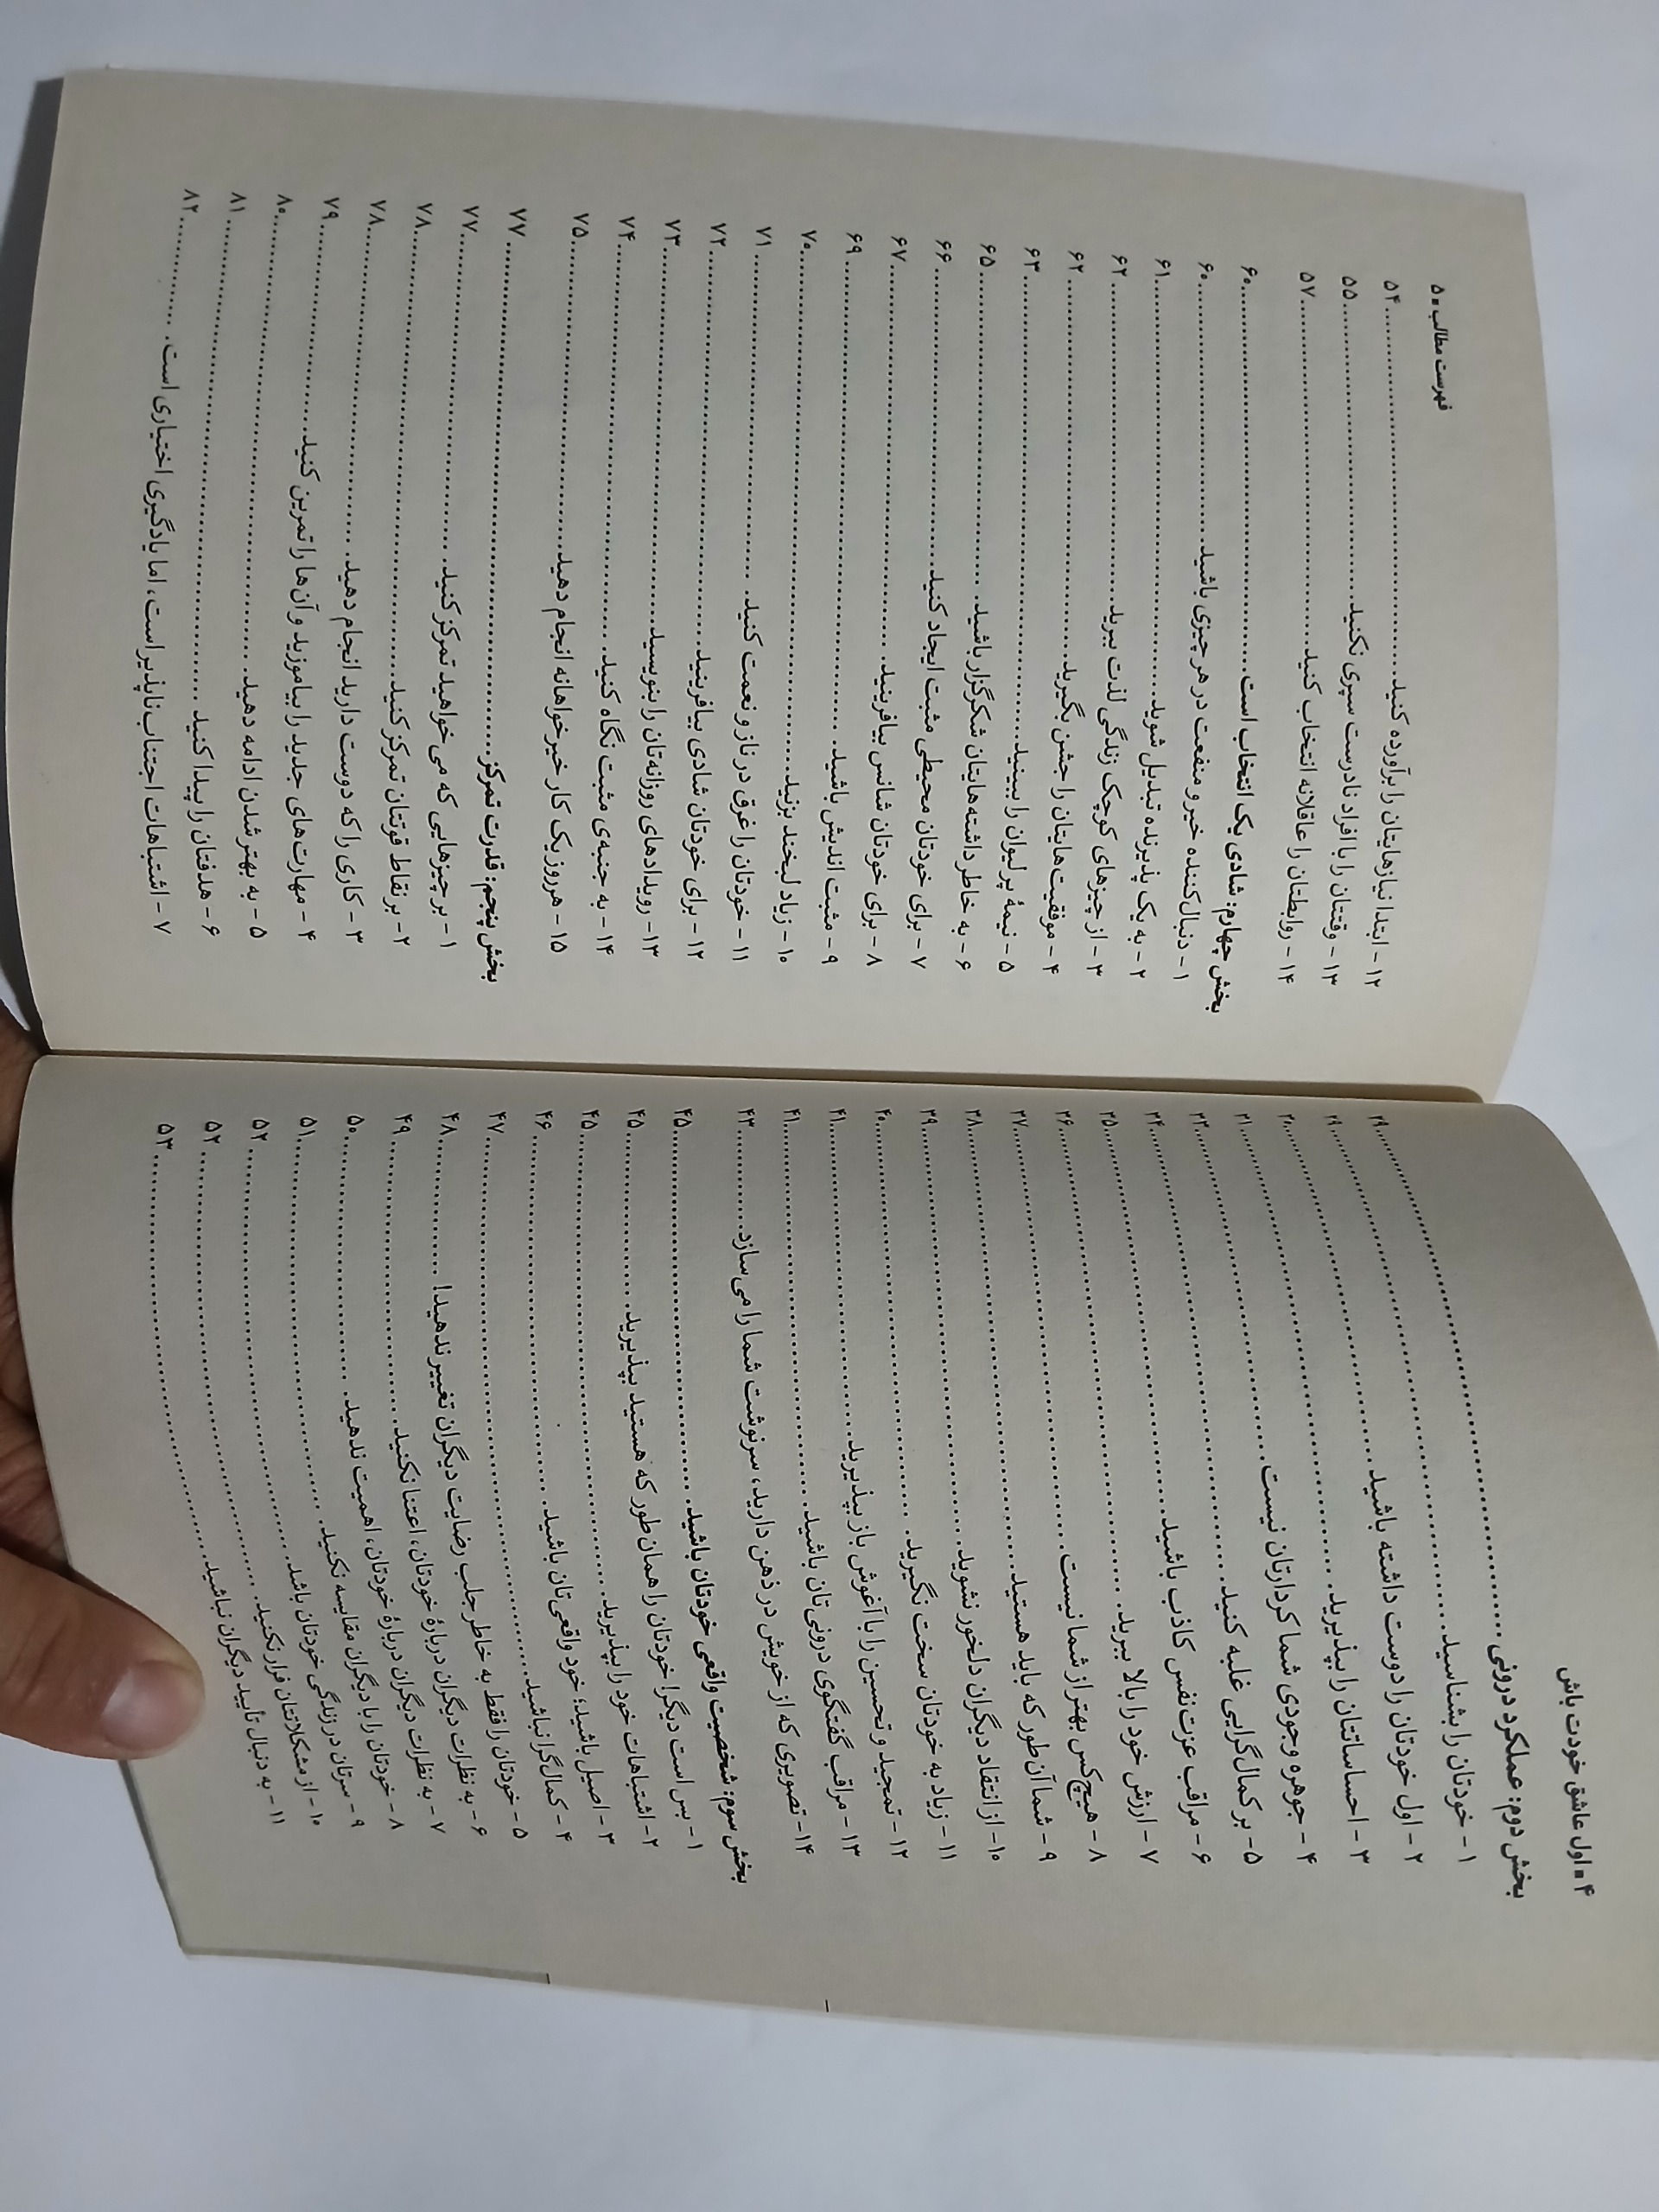 ۴ ■ اول عاشق خودت باش
بخش دوم: عملکرد درونی ........ ۲۹
۱ - خودتان را بشناسید ........ ۲۹
۲ - اول خودتان را دوست داشته باشید ........ ۳۰
۳ - احساساتتان را بپذیرید ........ ۳۱
۴ - جوهره وجودی شما کردارتان نیست ........ ۳۳
۵ - بر کمال‌گرایی غلبه کنید ........ ۳۴
۶ - مراقب عزت‌نفس کاذب باشید ........ ۳۵
۷ - ارزش خود را بالا ببرید ........ ۳۶
۸ - هیچ‌کس بهتر از شما نیست ........ ۳۷
۹ - شما آن‌طور که باید هستید ........ ۳۸
۱۰ - از انتقاد دیگران دلخور نشوید ........ ۳۹
۱۱ - زیاد به خودتان سخت نگیرید ........ ۴۰
۱۲ - تمجید و تحسین را با آغوش باز بپذیرید ........ ۴۱
۱۳ - مراقب گفتگوی درونی‌تان باشید ........ ۴۱
۱۴ - تصویری که از خویش در ذهن دارید، سرنوشت شما را می‌سازد ........ ۴۳
بخش سوم: شخصیت واقعی خودتان باشید ........ ۴۵
۱ - بس است دیگر! خودتان را همان‌طور که هستید بپذیرید ........ ۴۵
۲ - اشتباهات خود را بپذیرید ........ ۴۵
۳ - اصیل باشید؛ خود واقعی‌تان باشید ........ ۴۶
۴ - کمال‌گرا نباشید ........ ۴۷
۵ - خودتان را فقط به خاطر جلب رضایت دیگران تغییر ندهید! ........ ۴۸
۶ - به نظرات دیگران دربارهٔ خودتان، اعتنا نکنید ........ ۴۹
۷ - به نظرات دیگران دربارهٔ خودتان، اهمیت ندهید ........ ۵۰
۸ - خودتان را با دیگران مقایسه نکنید ........ ۵۱
۹ - سرتان در زندگی خودتان باشد ........ ۵۲
۱۰ - از مشکلاتتان فرار نکنید ........ ۵۲
۱۱ - به دنبال تأیید دیگران نباشید ........ ۵۳
فهرست مطالب ■ ۵
۱۲ - ابتدا نیازهایتان را برآورده کنید ........ ۵۴
۱۳ - وقتتان را با افراد نادرست سپری نکنید ........ ۵۵
۱۴ - روابطتان را عاقلانه انتخاب کنید ........ ۵۷
بخش چهارم: شادی یک انتخاب است ........ ۶۰
۱ - دنبال‌کننده خیر و منفعت در هر چیزی باشید ........ ۶۰
۲ - به یک پذیرنده تبدیل شوید ........ ۶۱
۳ - از چیزهای کوچک زندگی لذت ببرید ........ ۶۲
۴ - موفقیت‌هایتان را جشن بگیرید ........ ۶۲
۵ - نیمهٔ پر لیوان را ببینید ........ ۶۳
۶ - به خاطر داشته‌هایتان شکرگزار باشید ........ ۶۵
۷ - برای خودتان محیطی مثبت ایجاد کنید ........ ۶۶
۸ - برای خودتان شانس بیافرینید ........ ۶۷
۹ - مثبت اندیش باشید ........ ۶۹
۱۰ - زیاد لبخند بزنید ........ ۷۰
۱۱ - خودتان را غرق در ناز و نعمت کنید ........ ۷۱
۱۲ - برای خودتان شادی بیافرینید ........ ۷۲
۱۳ - رویدادهای روزانه‌تان را بنویسید ........ ۷۳
۱۴ - به جنبه‌ی مثبت نگاه کنید ........ ۷۴
۱۵ - هر روز یک کار خیرخواهانه انجام دهید ........ ۷۵
بخش پنجم: قدرت تمرکز ........ ۷۷
۱ - بر چیزهایی که می‌خواهید تمرکز کنید ........ ۷۷
۲ - بر نقاط قوتتان تمرکز کنید ........ ۷۸
۳ - کاری را که دوست دارید انجام دهید ........ ۷۸
۴ - مهارت‌های جدید را بیاموزید و آن‌ها را تمرین کنید ........ ۷۹
۵ - به بهتر شدن ادامه دهید ........ ۸۰
۶ - هدفتان را پیدا کنید ........ ۸۱
۷ - اشتباهات اجتناب‌ناپذیر است، اما یادگیری اختیاری است ........ ۸۲